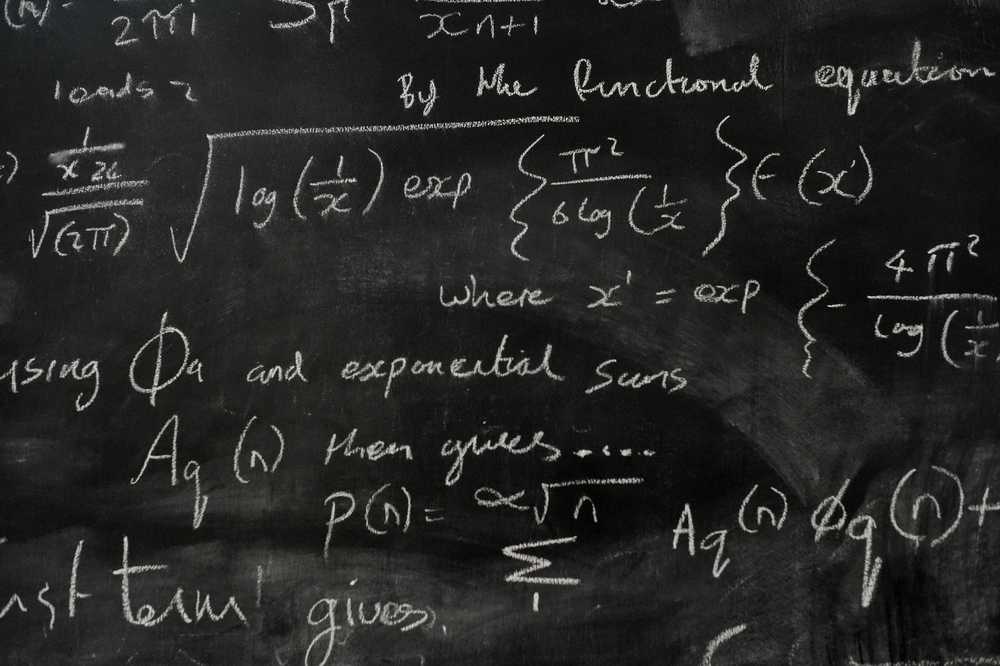 2πi xn+1
By the functional equation
1/x24 / √(2π) √ log (1/x) exp { π² / 6 log (1/x } F (x')
where x' = exp { - 4π² / log (1/x
using Φa and exponential sums
Aq (n) then gives.....
p(n) = ∝√n Σ 1 Aq(n) Φq(n) +
term gives.